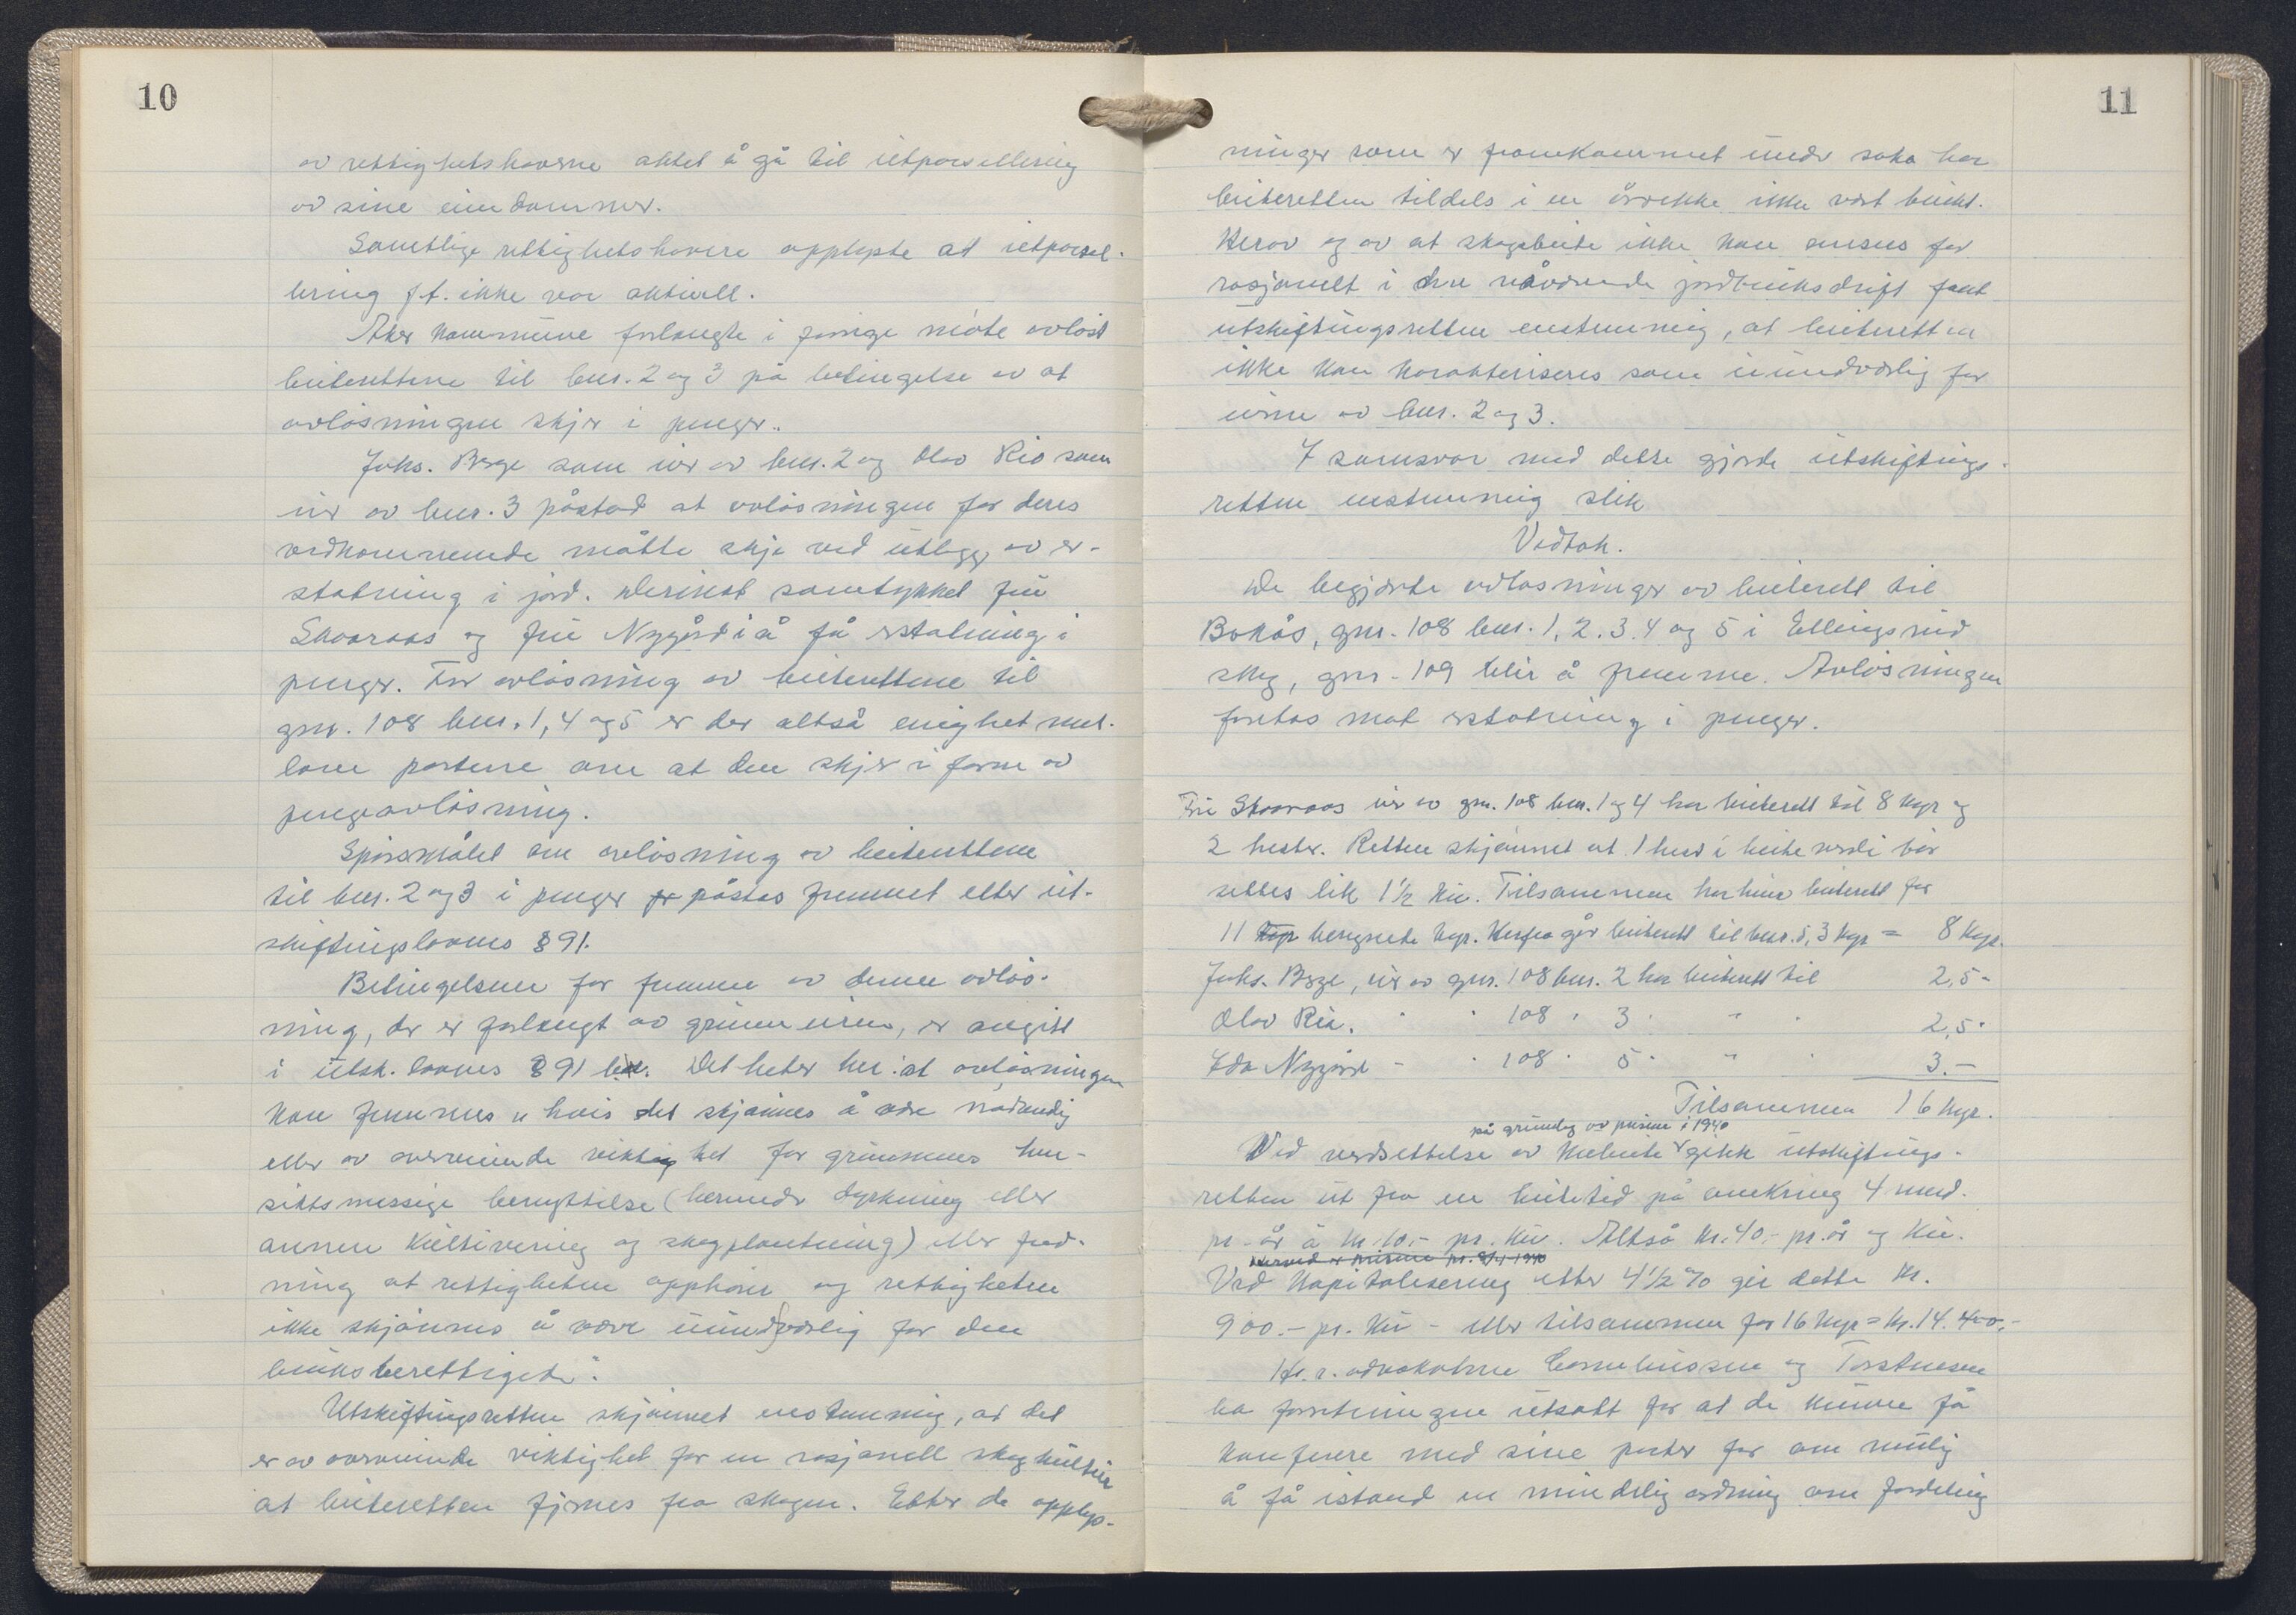 10
av rettighetshaverne aktet å gå til utparsellering
av sine eiendommer.
Samtlige rettighetshavere opplyste at utparsel-
lering f.t. ikke var aktuell.
Aker kommune forlangte i forrige møte avløst
beiterettene til bnr. 2 og 3 på betingelse av at
avløsningen skjer i penger.
Johs. Berge som eier av bnr. 2 og Olav Rio som
eier av bnr. 3 påstod at avløsningen for deres
vedkommende måtte skje ved utlegg av er-
statning i jord. Derimot samtykket fru
Skaaraas og fru Nygård i å få erstatning i
penger. For avløsning av beiterettene til
gnr. 108 bnr. 1, 4 og 5 er der altså enighet mel-
lom partene om at den skjer i form av
pengeavløsning.
Spørsmålet om avløsning av beiterettene
til bnr. 2 og 3 i penger påstås fremmet etter ut-
skiftingslovens § 91.
Betingelsene for fremme av denne avløs-
ning, der er forlangt av grunneieren, er angitt
i utsk. lovens § 91 Det heter her: at avløsningen
kan fremmes "hvis det skjønnes å være nødvendig
eller av overveiende viktighet for grunnens hen-
siktsmessige benyttelse (herunder dyrkning eller
annen kultivering og skogplantning) eller fred-
ning at rettigheten opphører og rettigheten
ikke skjønnes å være uundværlig for den
bruksberettigede".
Utskiftingsretten skjønnet enstemmig, at det
er av overveiende viktighet for en rasjonell skogkultur
at beiteretten fjernes fra skogen. Etter de opplys-
11
ninger som er fremkommet under saka har
beiteretten tildels i en årrekke ikke vært brukt.
Herav og av at skogsbeite ikke kan ansees for
rasjonelt i den nåværende jordbruksdrift fant
utskiftingsretten enstemmig, at beiteretten
ikke kan karakteriseres som uundværlig for
eierne av bnr. 2 og 3.
I samsvar med dette gjorde utskiftings-
retten enstemmig slik
Vedtak.
De begjærte avløsninger av beiterett til
Bokås, gnr. 108 bnr. 1, 2. 3. 4 og 5 i Ellingsrud
skog, gnr. 109 blir å fremme. Avløsningen
foretas mot erstatning i penger.
Fru Skaaraas eier av gnr. 108 bnr. 1 og 4 har beiterett til 8 kyr og
2 hester. Retten skjønnet at 1 hest i beiteverdi bør
settes lik 1½ ku. Tilsammen har hun beiterett for
11 beregnede kyr. Herfra går beiterett til bnr. 5, 3 kyr = 8 kyr.
Johs. Berge, eier av gnr. 108 bnr. 2 har beiterett til 2,5 "
Olav Rio. " " 108 " 3 " " " 2,5 "
Eda Nygård " " 108 " 5 " " " 3. -
Tilsammen 16 kyr.
på grunnlag av prisene i 1940
Ved verdsettelse av kubeite gikk utskiftings-
retten ut fra en beitetid på omkring 4 mnd.
pr. år à kr. 10,- pr. ku. Altså kr. 40,- pr. år og ku.
Ved kapitalisering etter 4½ % gir dette kr.
900.- pr. ku - eller tilsammen for 16 kyr = kr. 14.400,-
H.r. advokatene Corneliussen og Torstensen
ba forretningen utsatt for at de kunne få
konferere med sine parter for om mulig
å få istand en mindelig ordning om fordeling